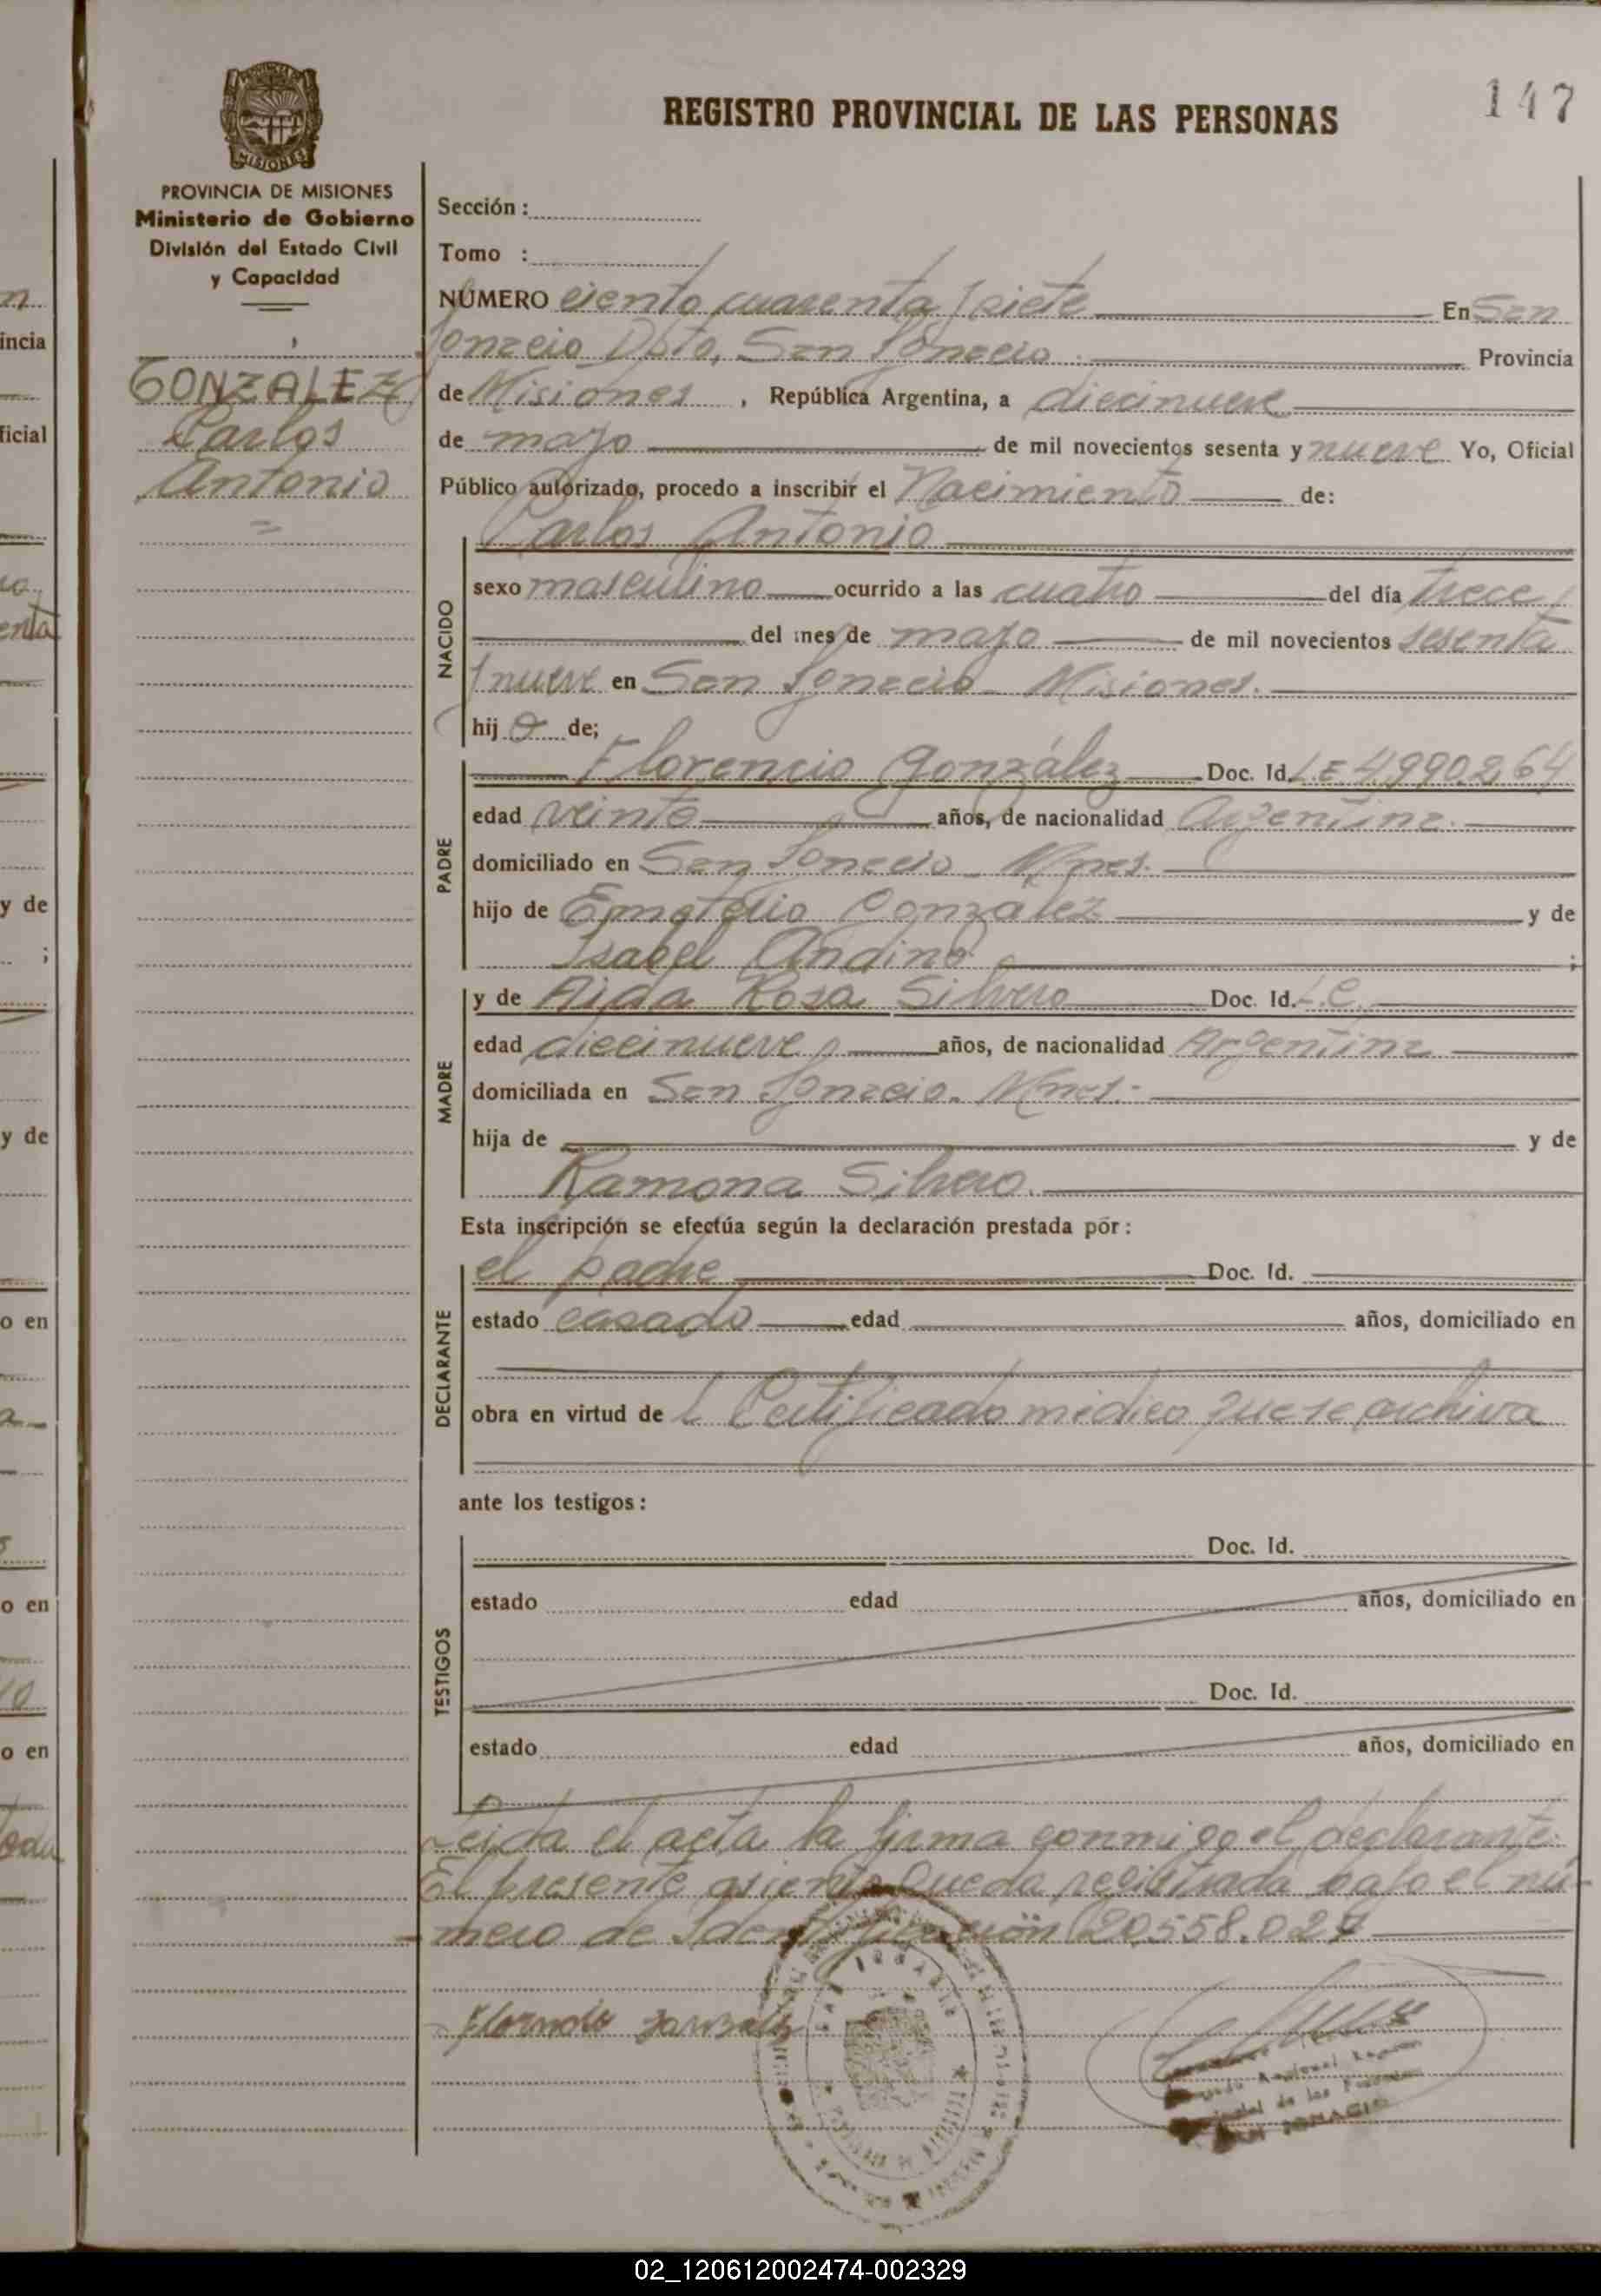 147
REGISTRO PROVINCIAL DE LAS PERSONAS
PROVINCIA DE MISIONES
Ministerio de Gobierno
División del Estado Civil
y Capacidad
GONZALEZ
Carlos
Antonio
Sección :
Tomo :
NÚMERO ciento cuarenta y siete En San
Ignacio Dpto. San Ignacio Provincia
de Misiones , República Argentina, a diecinueve
de mayo de mil novecientos sesenta y nueve Yo, Oficial
Público autorizado, procedo a inscribir el Nacimiento de:
Carlos Antonio
NACIDO
sexo masculino ocurrido a las cuatro del día trece
del mes de mayo de mil novecientos sesenta
y nueve en San Ignacio - Misiones.
hijo de;
PADRE
Florencio González Doc. Id. L.E 4.990.264
edad veinte años, de nacionalidad Argentina.
domiciliado en San Ignacio - Mnes.
hijo de Emeterio Gonzalez y de
Isabel Andino ;
MADRE
y de Aida Rosa Silvero Doc. Id. L.C.
edad diecinueve años, de nacionalidad Argentina
domiciliada en San Ignacio. Mnes.-
hija de y de
Ramona Silvero.
Esta inscripción se efectúa según la declaración prestada por :
DECLARANTE
el padre Doc. Id.
estado casado edad años, domiciliado en
obra en virtud de l Certificado médico que se archiva
ante los testigos :
TESTIGOS
Doc. Id.
estado edad años, domiciliado en
Doc. Id.
estado edad años, domiciliado en
Leida el acta la firma conmigo el declarante.
El presente asiento queda registrada bajo el nú-
mero de Identificación 20.558.027
SAN IGNACIO
02_120612002474-002329